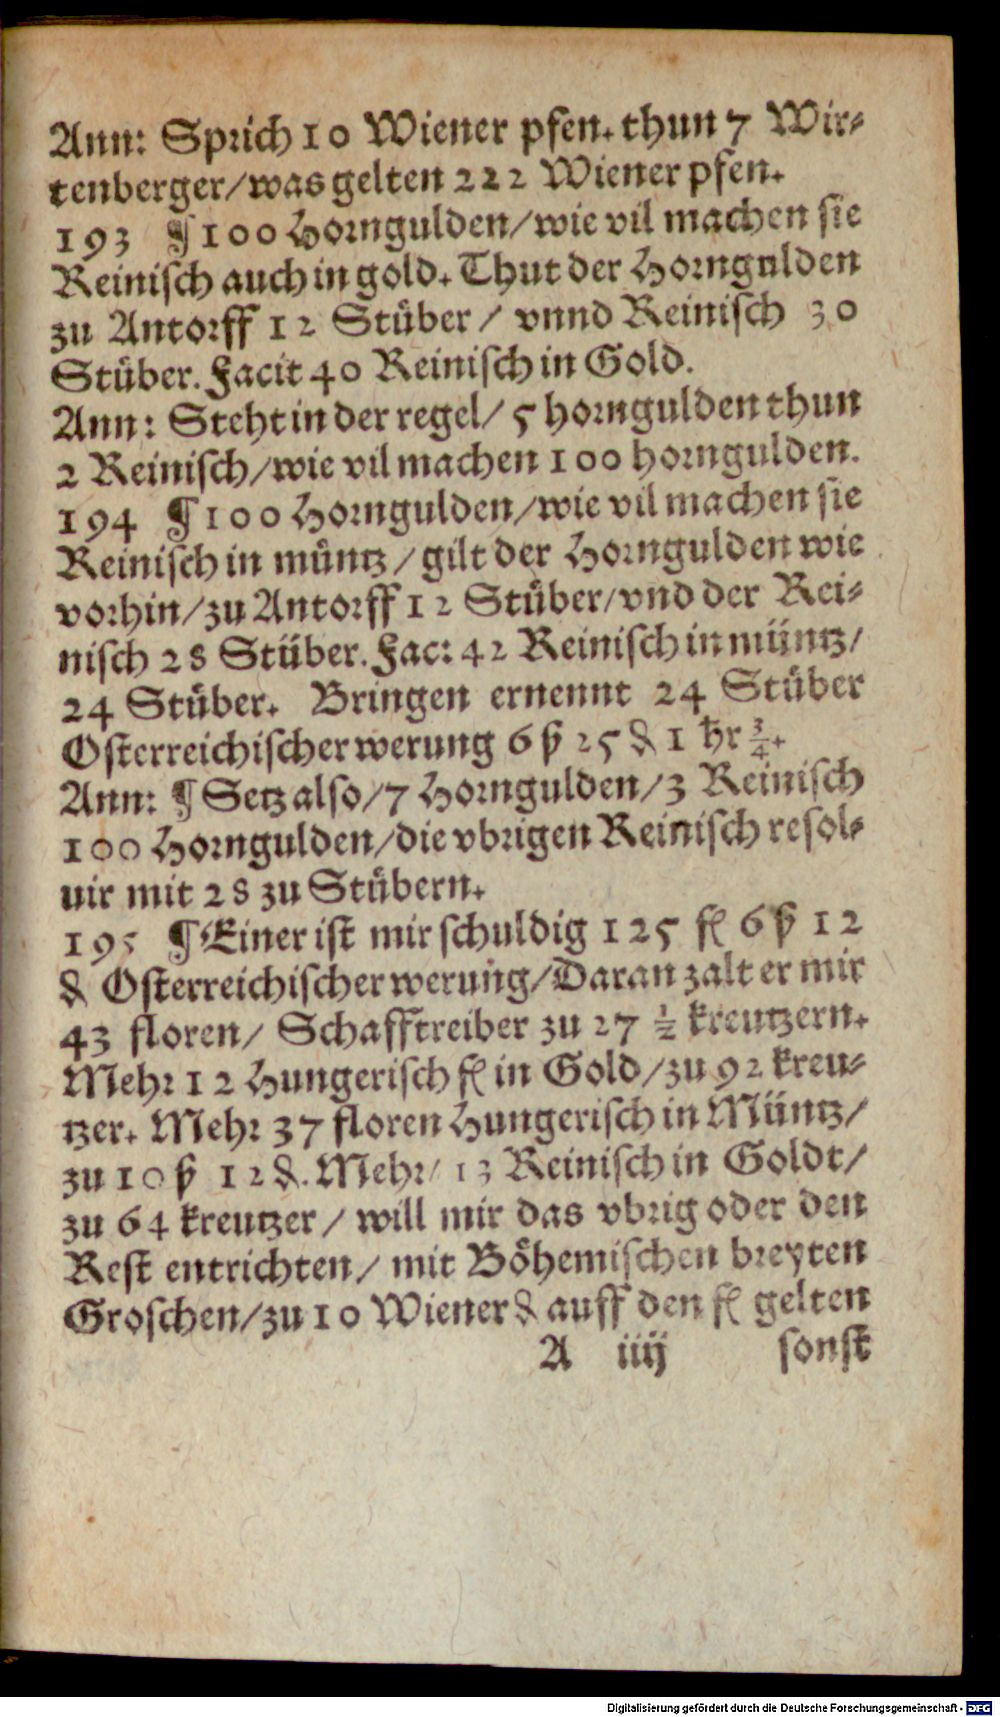 Ann: Sprich 10 Wiener pfen. thun 7 Wir-
tenberger/was gelten 222 Wiener pfen.
193 ¶ 100 Horngulden/wie vil machen sie
Reinisch auch in gold. Thut der Horngulden
zu Antorff 12 Stüber / vnnd Reinisch 30
Stüber. Facit 40 Reinisch in Gold.
Ann: Steht in der regel/ 5 horngulden thun
2 Reinisch/wie vil machen 100 horngulden.
194 ¶ 100 Horngulden/wie vil machen sie
Reinisch in müntz / gilt der Horngulden wie
vorhin/zu Antorff 12 Stüber/vnd der Rei-
nisch 28 Stüber. Fac: 42 Reinisch in müntz/
24 Stüber. Bringen ernennt 24 Stüber
Osterreichischer werung 6 ß 25 ₰ 1 hr ¾.
Ann: ¶ Setz also/7 Horngulden/3 Reinisch
100 Horngulden/die vbrigen Reinisch resol-
uir mit 28 zu Stübern.
195 ¶ Einer ist mir schuldig 125 fl 6 ß 12
₰ Osterreichischer werung/Daran zalt er mir
43 floren/ Schafftreiber zu 27 ½ kreutzern.
Mehr 12 Hungerisch fl in Gold/zu 92 kreu-
tzer. Mehr 37 floren Hungerisch in Müntz/
zu 10 ß 12 ₰. Mehr/ 13 Reinisch in Goldt/
zu 64 kreutzer / will mir das vbrig oder den
Rest entrichten/ mit Böhemischen breyten
Groschen/zu 10 Wiener ₰ auff den fl gelten
A iiij sonst
Digitalisierung gefördert durch die Deutsche Forschungsgemeinschaft - DFG